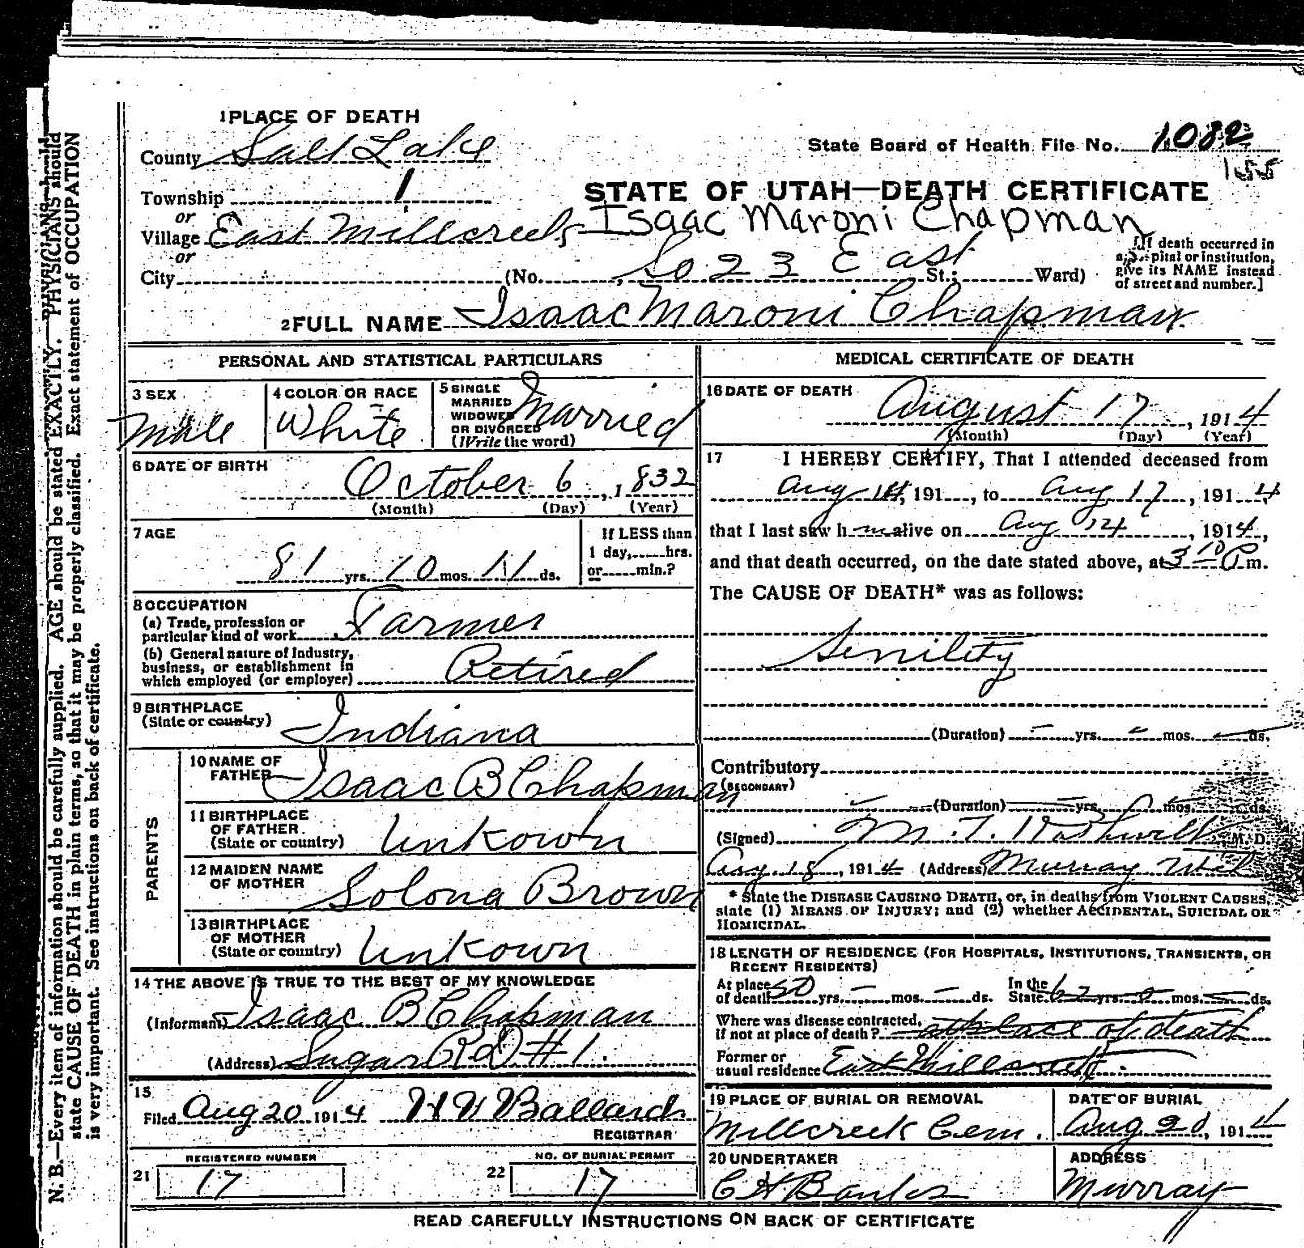 1 PLACE OF DEATH
County Salt Lake
State Board of Health File No. 1082
155
Township 1
STATE OF UTAH—DEATH CERTIFICATE
or
Village East Millcreek Isaac Maroni Chapman
or
City (No. So 23 East St.; Ward)
[If death occurred in a hospital or institution, give its NAME instead of street and number.]
2 FULL NAME Isaac Maroni Chapman
PERSONAL AND STATISTICAL PARTICULARS
3 SEX
Male
4 COLOR OR RACE
White
5 SINGLE
MARRIED
WIDOWED
OR DIVORCED
(Write the word)
Married
6 DATE OF BIRTH
October 6, 1832
(Month) (Day) (Year)
7 AGE
81 yrs. 10 mos. 11 ds.
If LESS than
1 day, hrs.
or min.?
8 OCCUPATION
(a) Trade, profession or
particular kind of work Farmer
(b) General nature of Industry,
business, or establishment in
which employed (or employer) Retired
9 BIRTHPLACE
(State or country) Indiana
PARENTS
10 NAME OF
FATHER Isaac B Chapman
11 BIRTHPLACE
OF FATHER
(State or country) Unkown
12 MAIDEN NAME
OF MOTHER Solona Brown
13 BIRTHPLACE
OF MOTHER
(State or country) Unkown
14 THE ABOVE IS TRUE TO THE BEST OF MY KNOWLEDGE
(Informant) Isaac B Chapman
(Address) Sugar RD #1.
15
Filed Aug 20 1914 Ballard
REGISTRAR
REGISTERED NUMBER
21 17
NO. OF BURIAL PERMIT
22 17
MEDICAL CERTIFICATE OF DEATH
16 DATE OF DEATH
August 17, 1914
(Month) (Day) (Year)
17 I HEREBY CERTIFY, That I attended deceased from
Aug 14, 191 , to Aug 17, 1914
that I last saw h m alive on Aug 14, 1914,
and that death occurred, on the date stated above, at 3 10 P m.
The CAUSE OF DEATH* was as follows:
Senility
(Duration) - yrs. - mos. - ds.
Contributory
(SECONDARY)
(Duration) - yrs. mos. ds.
(Signed) M. D.
Aug 18, 1914 (Address) Murray Utah
* State the DISEASE CAUSING DEATH, or, in deaths from VIOLENT CAUSES,
state (1) MEANS OF INJURY; and (2) whether ACCIDENTAL, SUICIDAL OR
HOMICIDAL.
18 LENGTH OF RESIDENCE (FOR HOSPITALS, INSTITUTIONS, TRANSIENTS, OR
RECENT RESIDENTS)
At place
of death 50 yrs. - mos. - ds.
In the
State 62 yrs. 0 mos. - ds.
Where was disease contracted,
if not at place of death? at place of death
Former or
usual residence East Millcreek
19 PLACE OF BURIAL OR REMOVAL
Millcreek Cem.
DATE OF BURIAL
Aug 20, 1914
20 UNDERTAKER
ADDRESS
Murray
READ CAREFULLY INSTRUCTIONS ON BACK OF CERTIFICATE
N. B.—Every item of information should be carefully supplied. AGE should be stated EXACTLY. PHYSICIANS should
state CAUSE OF DEATH in plain terms, so that it may be properly classified. Exact statement of OCCUPATION
is very important. See instructions on back of certificate.